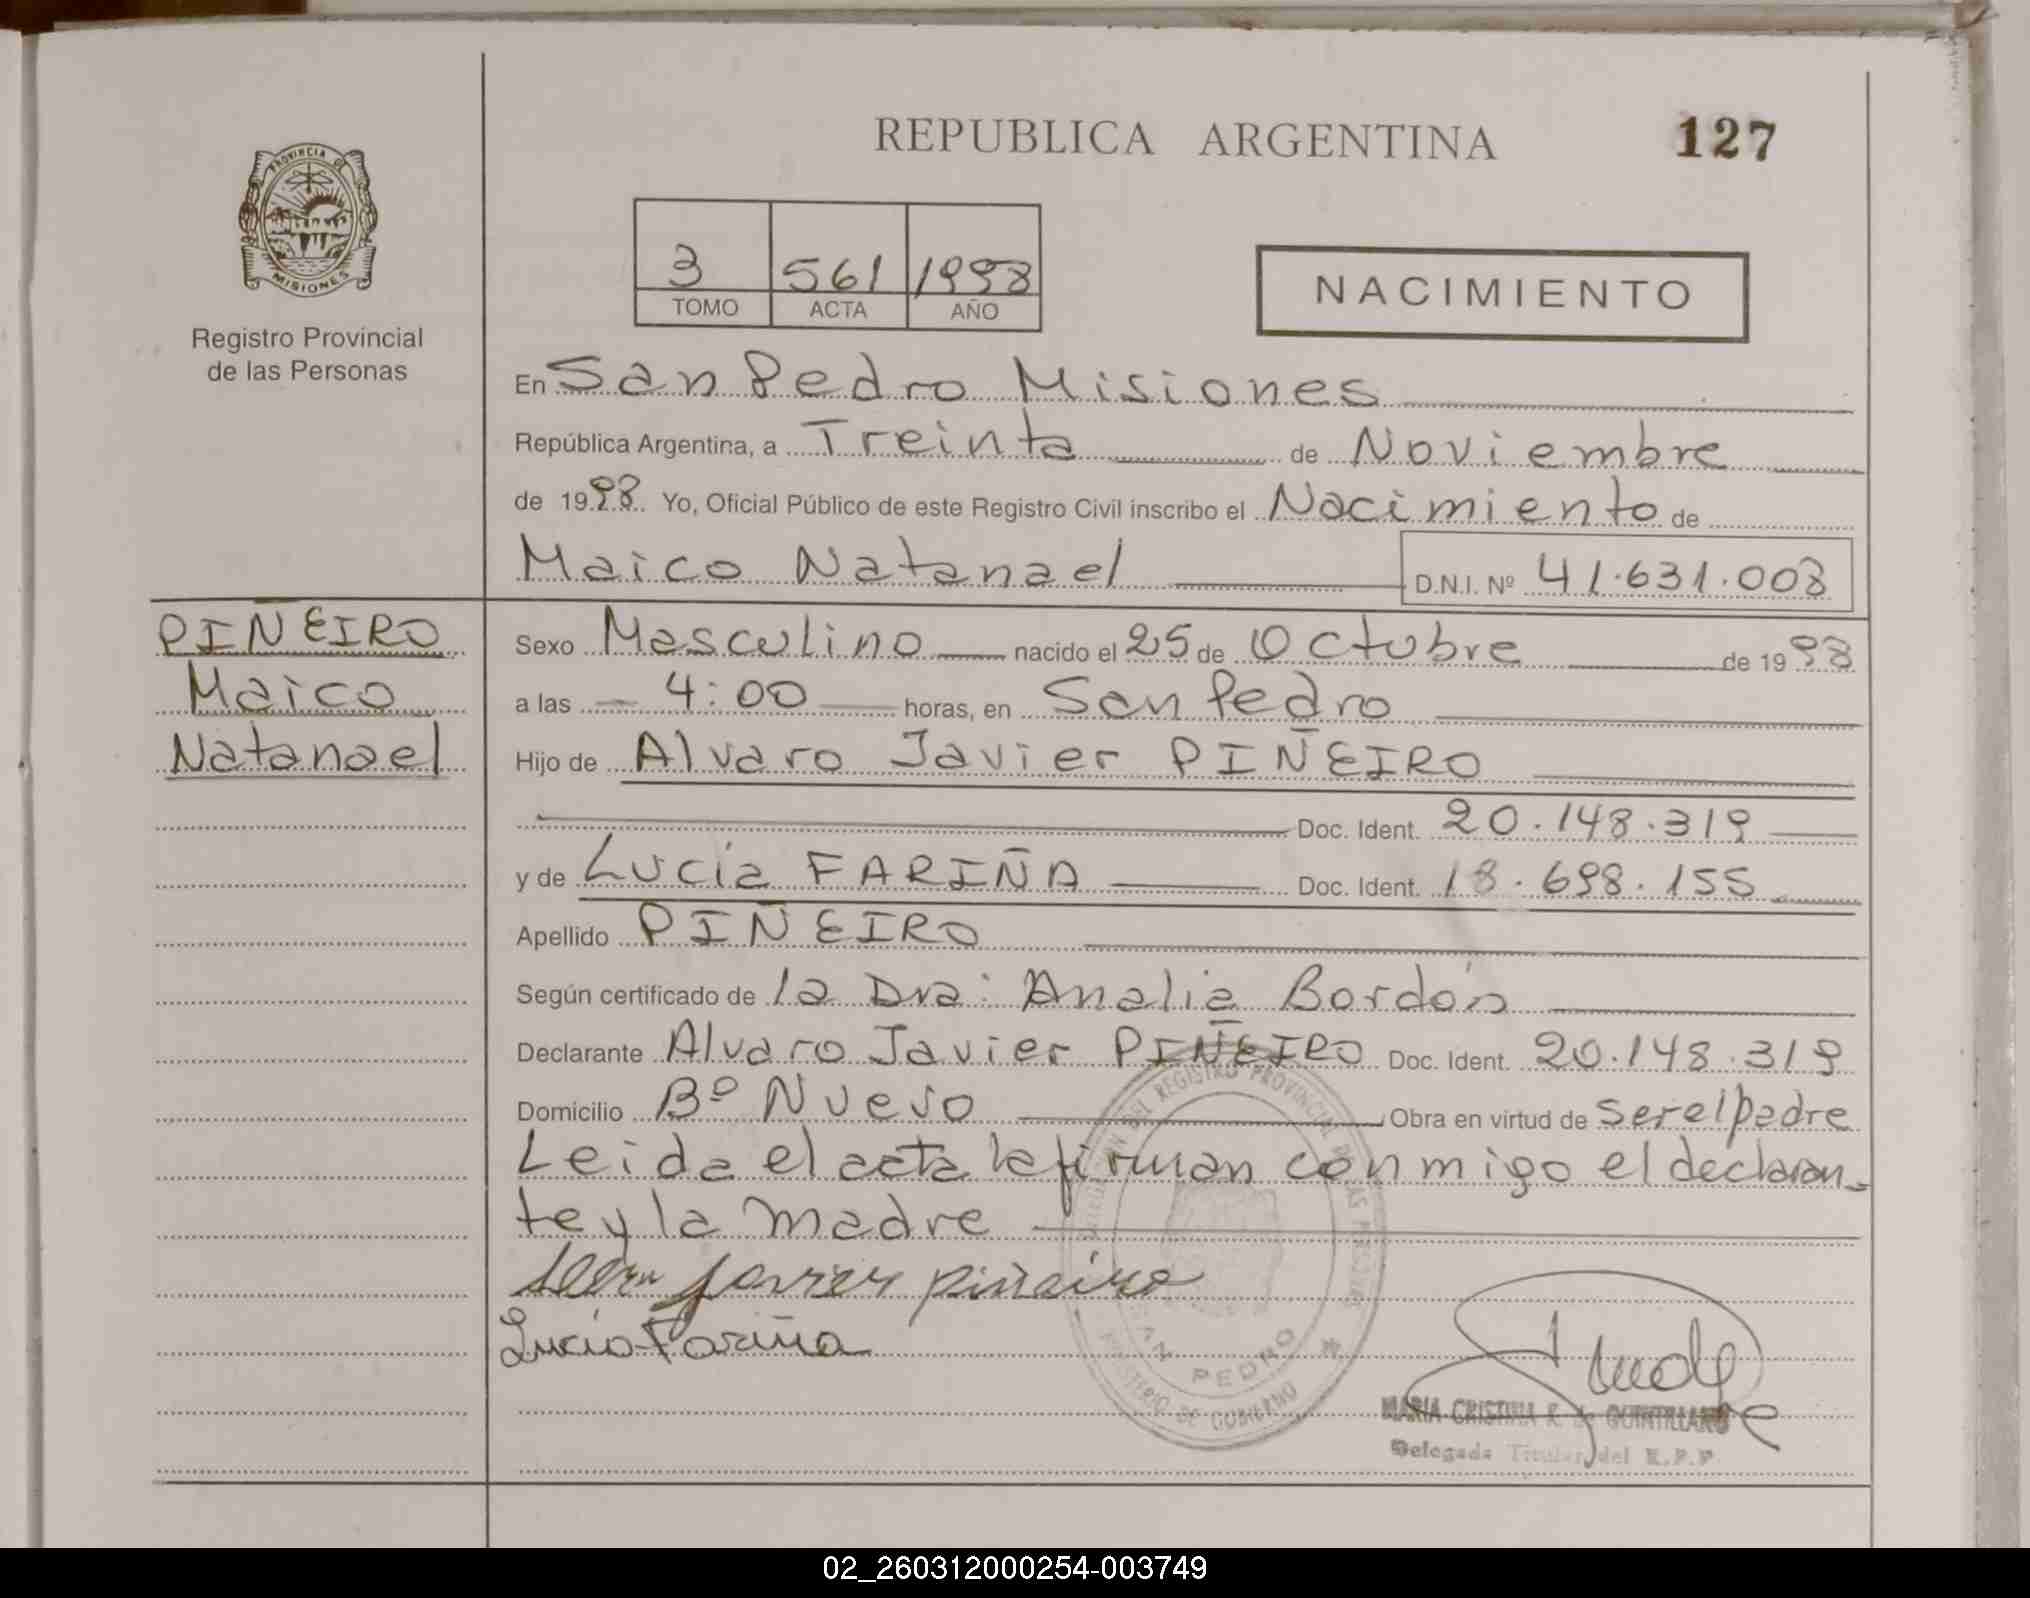 REPUBLICA ARGENTINA
127
PROVINCIA DE
MISIONES
Registro Provincial
de las Personas
3 561 1998
TOMO ACTA AÑO
NACIMIENTO
En San Pedro Misiones
República Argentina, a Treinta de Noviembre
de 1998. Yo, Oficial Público de este Registro Civil inscribo el Nacimiento de
Maico Natanael D.N.I. Nº 41.631.008
PIÑEIRO
Maico
Natanael
Sexo Masculino nacido el 25 de Octubre de 1998
a las 4:00 horas, en San Pedro
Hijo de Alvaro Javier PIÑEIRO
Doc. Ident. 20.148.319
y de Lucía FARIÑA Doc. Ident. 18.698.155
Apellido PIÑEIRO
Según certificado de la Dra: Analia Bordón
Declarante Alvaro Javier PIÑEIRO Doc. Ident. 20.148.319
Domicilio Bº Nuevo Obra en virtud de ser el padre
Leida el acta la firman conmigo el declaran-
te y la madre
Javier piñeiro
Lucia Fariña
DEL REGISTRO PROVINCIAL DE LAS PERSONAS
SAN PEDRO
MINISTERIO DE GOBIERNO
MARIA CRISTINA K. de QUINTILLANO
Delegada Titular del R.P.P
02_260312000254-003749